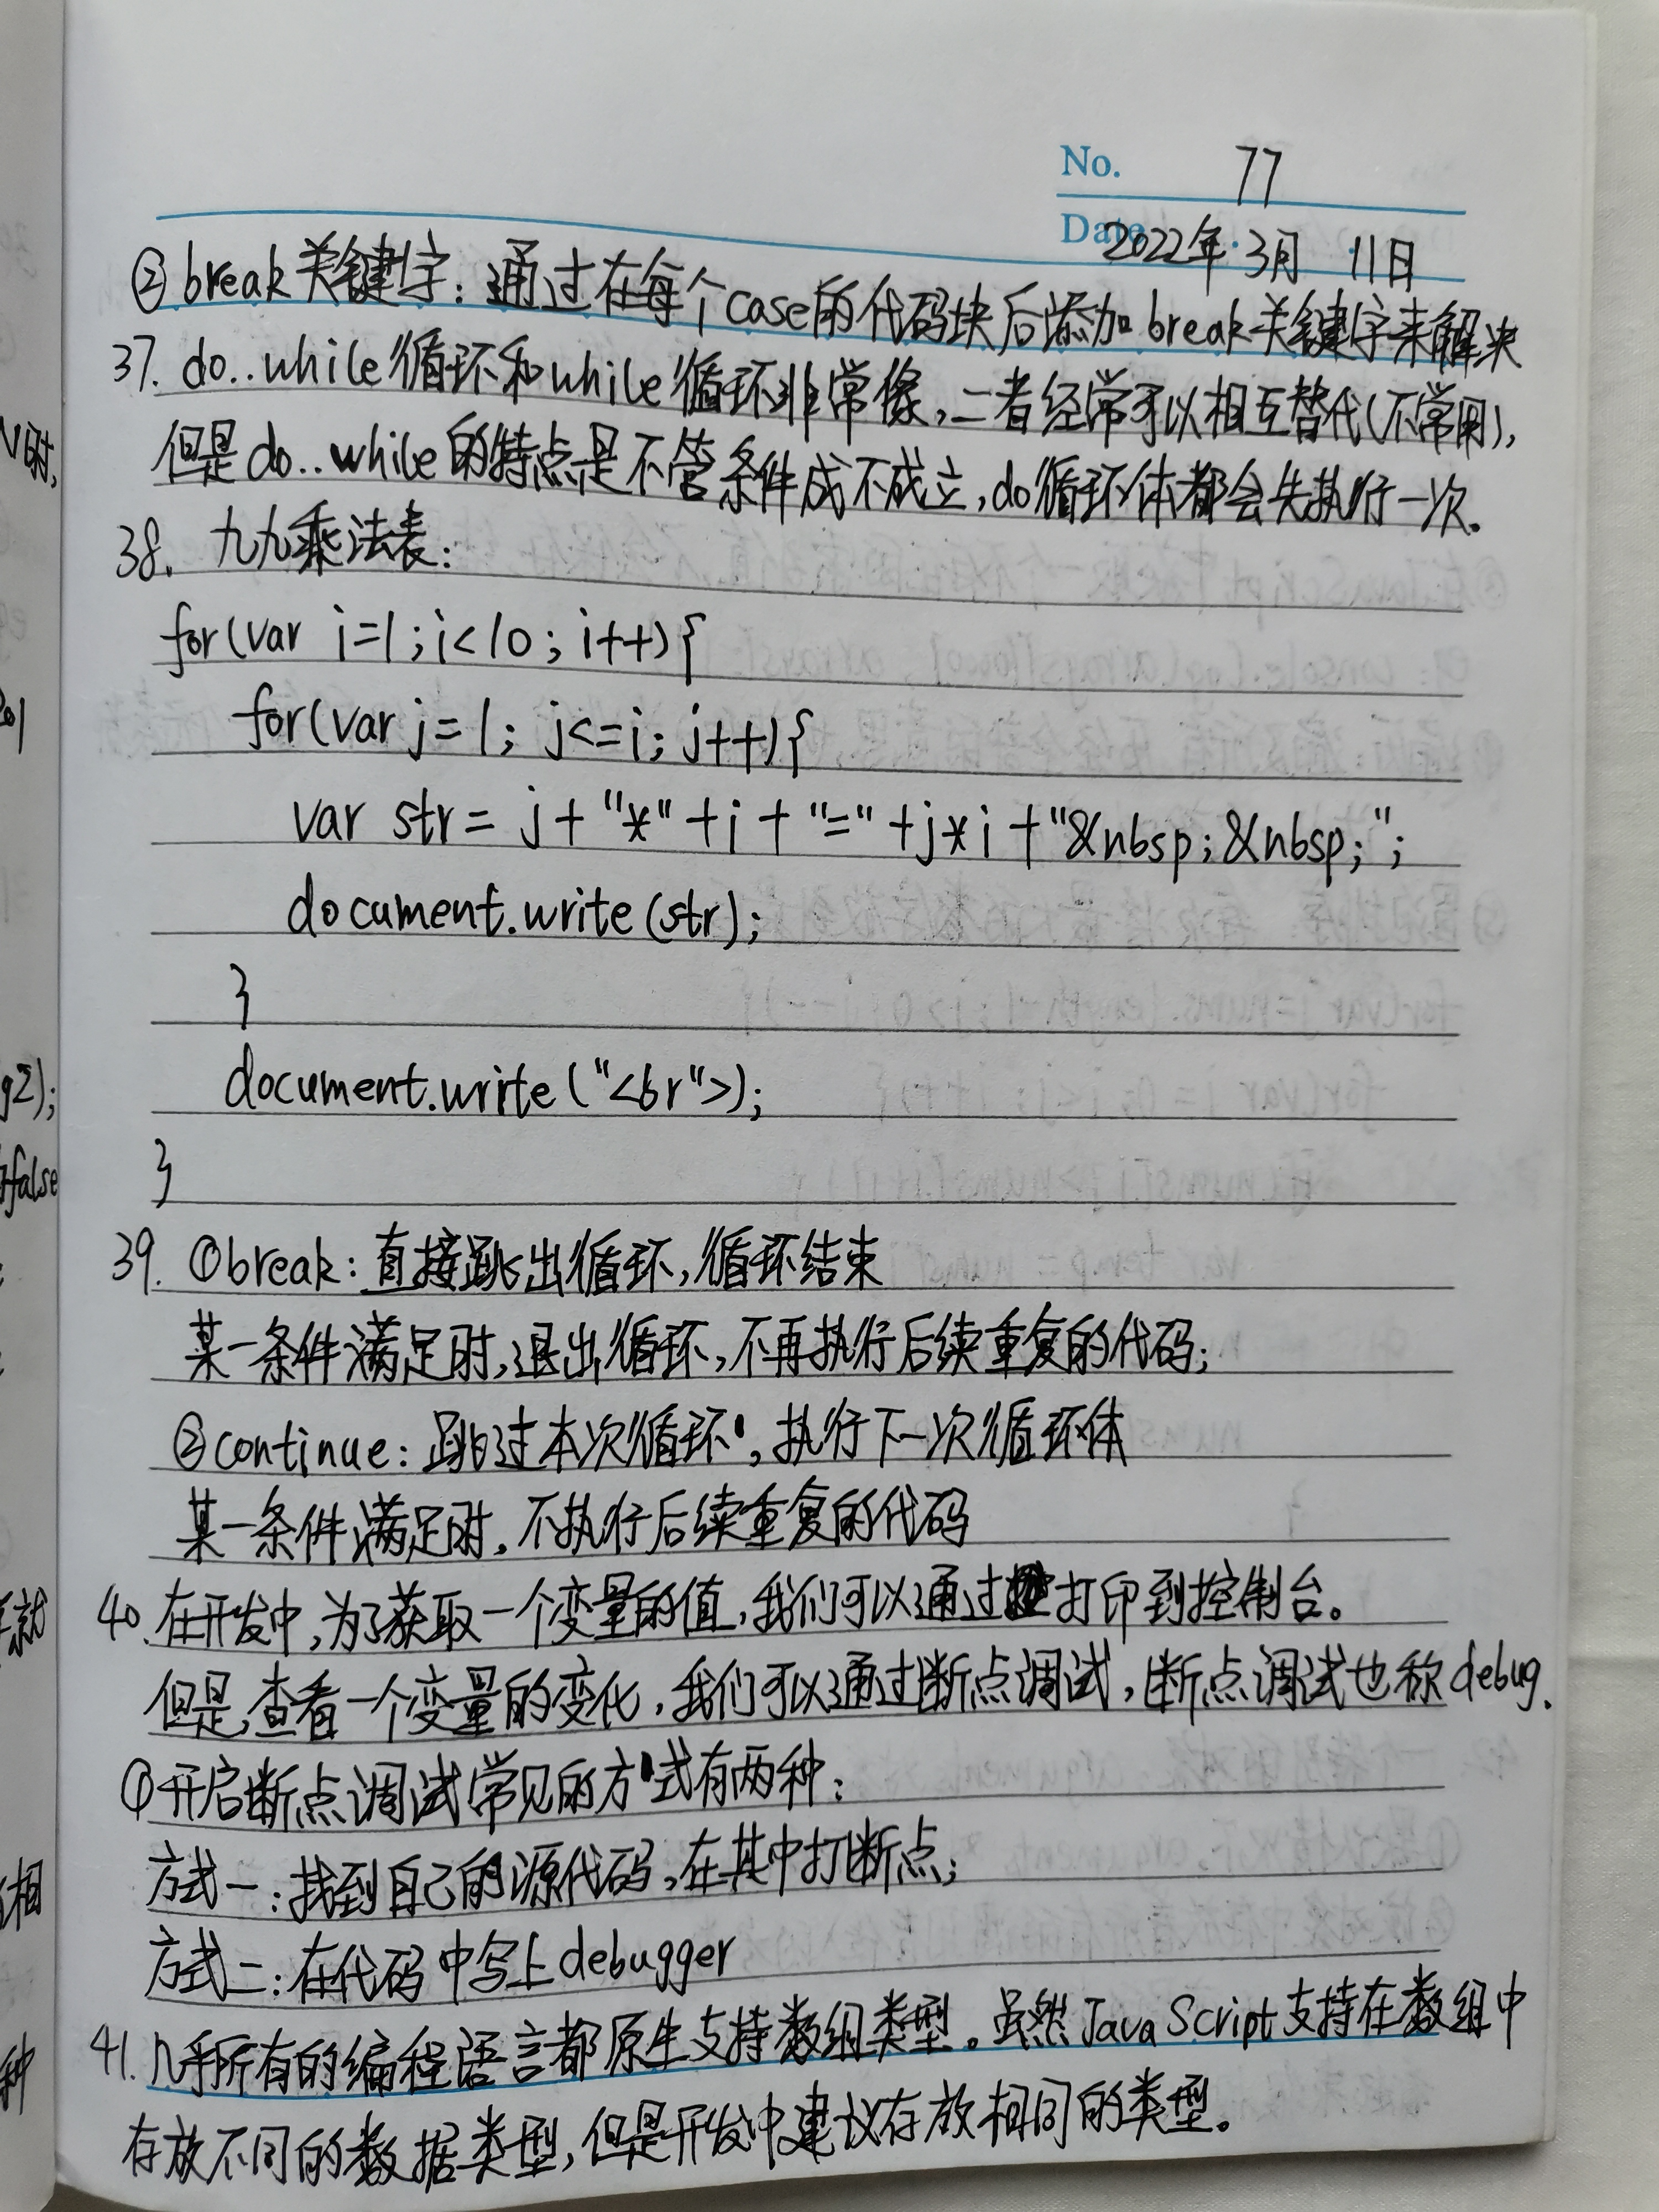 No. 77
Date 2022年.3月 11日
②break关键字：通过在每个case的代码块后添加break关键字来解决
37. do..while循环和while循环非常像，二者经常可以相互替代(不常用)，
但是do..while的特点是不管条件成不成立，do循环体都会先执行一次。
38. 九九乘法表：
for(var i=1;i<10;i++){
for(var j=1; j<=i; j++){
var str= j+ "*" +i + "=" +j*i +"&nbsp;&nbsp;";
document.write(str);
}
document.write("<br">);
}
39. ①break：直接跳出循环，循环结束
某一条件满足时，退出循环，不再执行后续重复的代码；
②continue：跳过本次循环，执行下一次循环体
某一条件满足时，不执行后续重复的代码
40. 在开发中，为了获取一个变量的值，我们可以通过打印到控制台。
但是，查看一个变量的变化，我们可以通过断点调试，断点调试也称debug.
①开启断点调试常见的方式有两种：
方式一：找到自己的源代码，在其中打断点；
方式二：在代码中写上debugger
41. 几乎所有的编程语言都原生支持数组类型。虽然JavaScript支持在数组中
存放不同的数据类型，但是开发中建议存放相同的类型。
V时，
g2);
false
相
种